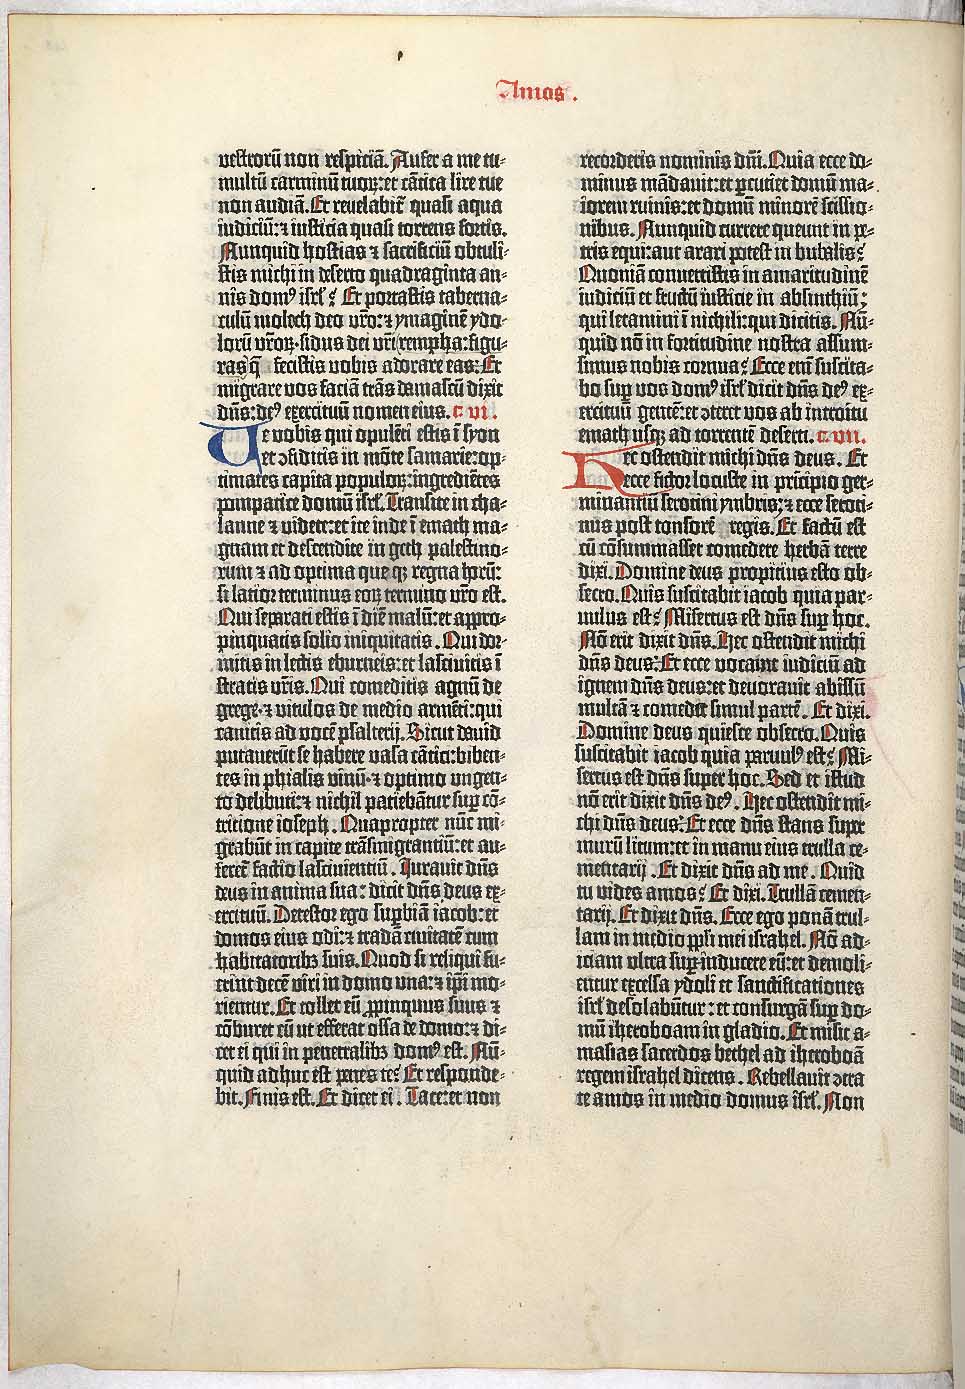 Amos.
vestrorū non respiciā. Aufer a me tu-
multū carminū tuoꝝ: et cātica lire tue
non audiā. Et revelabit̄ quasi aqua
iudiciū: ⁊ iusticia quasi torrens fortis.
Nunquid hostias ⁊ sacrificiū obtuli-
stis michi in deserto quadraginta an-
nis domꝰ isrl̄? Et portastis taberna-
culū moloch deo vr̄o: ⁊ ymaginē ydo-
lorū vr̄oꝝ. sidus dei vr̄i rempha: figu-
ras q̄ fecistis vobis adorare eas: Et
migrare vos faciā trās damascū dixit
dn̄s: deꝰ exercituū nomen eius. c. vi.
Ve vobis qui opulēti estis ī syon
et ꝯfiditis in mōte samarie: op-
timates capita populoꝝ: ingrediētes
pompatice domū isrl̄. Transite in cha-
lanne ⁊ videte: et ite inde ī emach ma-
gnam et descendite in geth palestino-
rum ⁊ ad optima que qꝫ regna hoꝝ:
si latior terminus eoꝝ termino vr̄o est.
Qui separati estis ī diē malū: et appro-
pinquatis solio iniquitatis. Qui dor-
mitis in lectis eburneis: et lascivitis ī
stratis vr̄is. Qui comeditis agnū de
grege: ⁊ vitulos de medio armēti: qui
canitis ad vocē psalterij. Sicut david
putaverūt se habere vasa cātici: biben-
tes in phialis vinū: ⁊ optimo ungen-
to delibuti: ⁊ nichil patiebātur suꝑ cō-
tritione ioseph. Quapropter nūc mi-
grabūt in capite trāsmigrantiū: et au-
feret̄ factio lascivientiū. Iuravit dn̄s
deus in anima sua: dicit dn̄s deus ex-
ercituū. Detestor ego suꝑbiā iacob: et
domos eius odi: ⁊ tradā civitatē cum
habitatoribꝫ suis. Quod si reliqui fu-
erint decē viri in domo una: ⁊ ip̄i mo-
rientur. Et tollet eū ꝓpinquus suus ⁊
cōburet eū ut efferat ossa de domo: ⁊ di-
cet ei qui in penetralibꝫ domꝰ est. Nū-
quid adhuc est penes te? Et responde-
bit. Finis est. Et dicet ei. Tace: et non
recorderis nominis dn̄i. Quia ecce do-
minus mādavit: et ꝑcutiet domū ma-
iorem ruinis: et domū minorē scissio-
nibus. Nunquid currere queunt in pe-
tris equi: aut arari potest in bubalis?
Quoniā convertistis in amaritudinē
iudiciū et fructū iusticie in absinthiū:
qui letamini ī nichili: qui dicitis. Nū-
quid nō in fortitudine nostra assum-
simus nobis cornua? Ecce eni̅ suscita-
bo suꝑ vos domꝰ isrl̄ dicit dn̄s deꝰ ex-
ercituū gentē: et ꝯteret vos ab introitu
emath usqꝫ ad torrentē deserti. c. vii.
Hec ostendit michi dn̄s deus. Et
ecce fictor locuste in pricipio ger-
minantiū serotini ymbris: ⁊ ecce seroti-
nus post tonsorē regis. Et factū est
cū cōsummasset comedere herbā terre
dixi. Domine deus propitius esto ob-
secro. Quis suscitabit iacob quia par-
vulus est? Misertus est dn̄s suꝑ hoc.
Nō erit dixit dn̄s. Hec ostendit michi
dn̄s deus: Et ecce vocavit iudiciū ad
ignem dn̄s deus: et devoravit abissū
multā ⁊ comedit simul partē. Et dixi.
Domine deus quiesce obsecro. Quis
suscitabit iacob quia parvulꝰ est? Mi-
sertus est dn̄s super hoc. Sed et istud
nō erit dixit dn̄s deꝰ. Hec ostendit mi-
chi dn̄s deus: Et ecce dn̄s stans super
murū litum: et in manu eius trulla ce-
mentarij. Et dixit dn̄s ad me. Quid
tu vides amos? Et dixi. Trullā cemen-
tarij. Et dixit dn̄s. Ecce ego ponā trul-
lam in medio ppl̄i mei israhel. Nō ad-
iciam ultra suꝑinducere eū: et demoli-
entur excelsa ydoli et sanctificationes
isrl̄ desolabūtur: et consurgā suꝑ do-
mū iheroboam in gladio. Et misit a-
masias sacerdos bethel ad iheroboā
regem israhel dicens. Rebellavit ꝯtra
te amos in medio domus isrl̄. Non